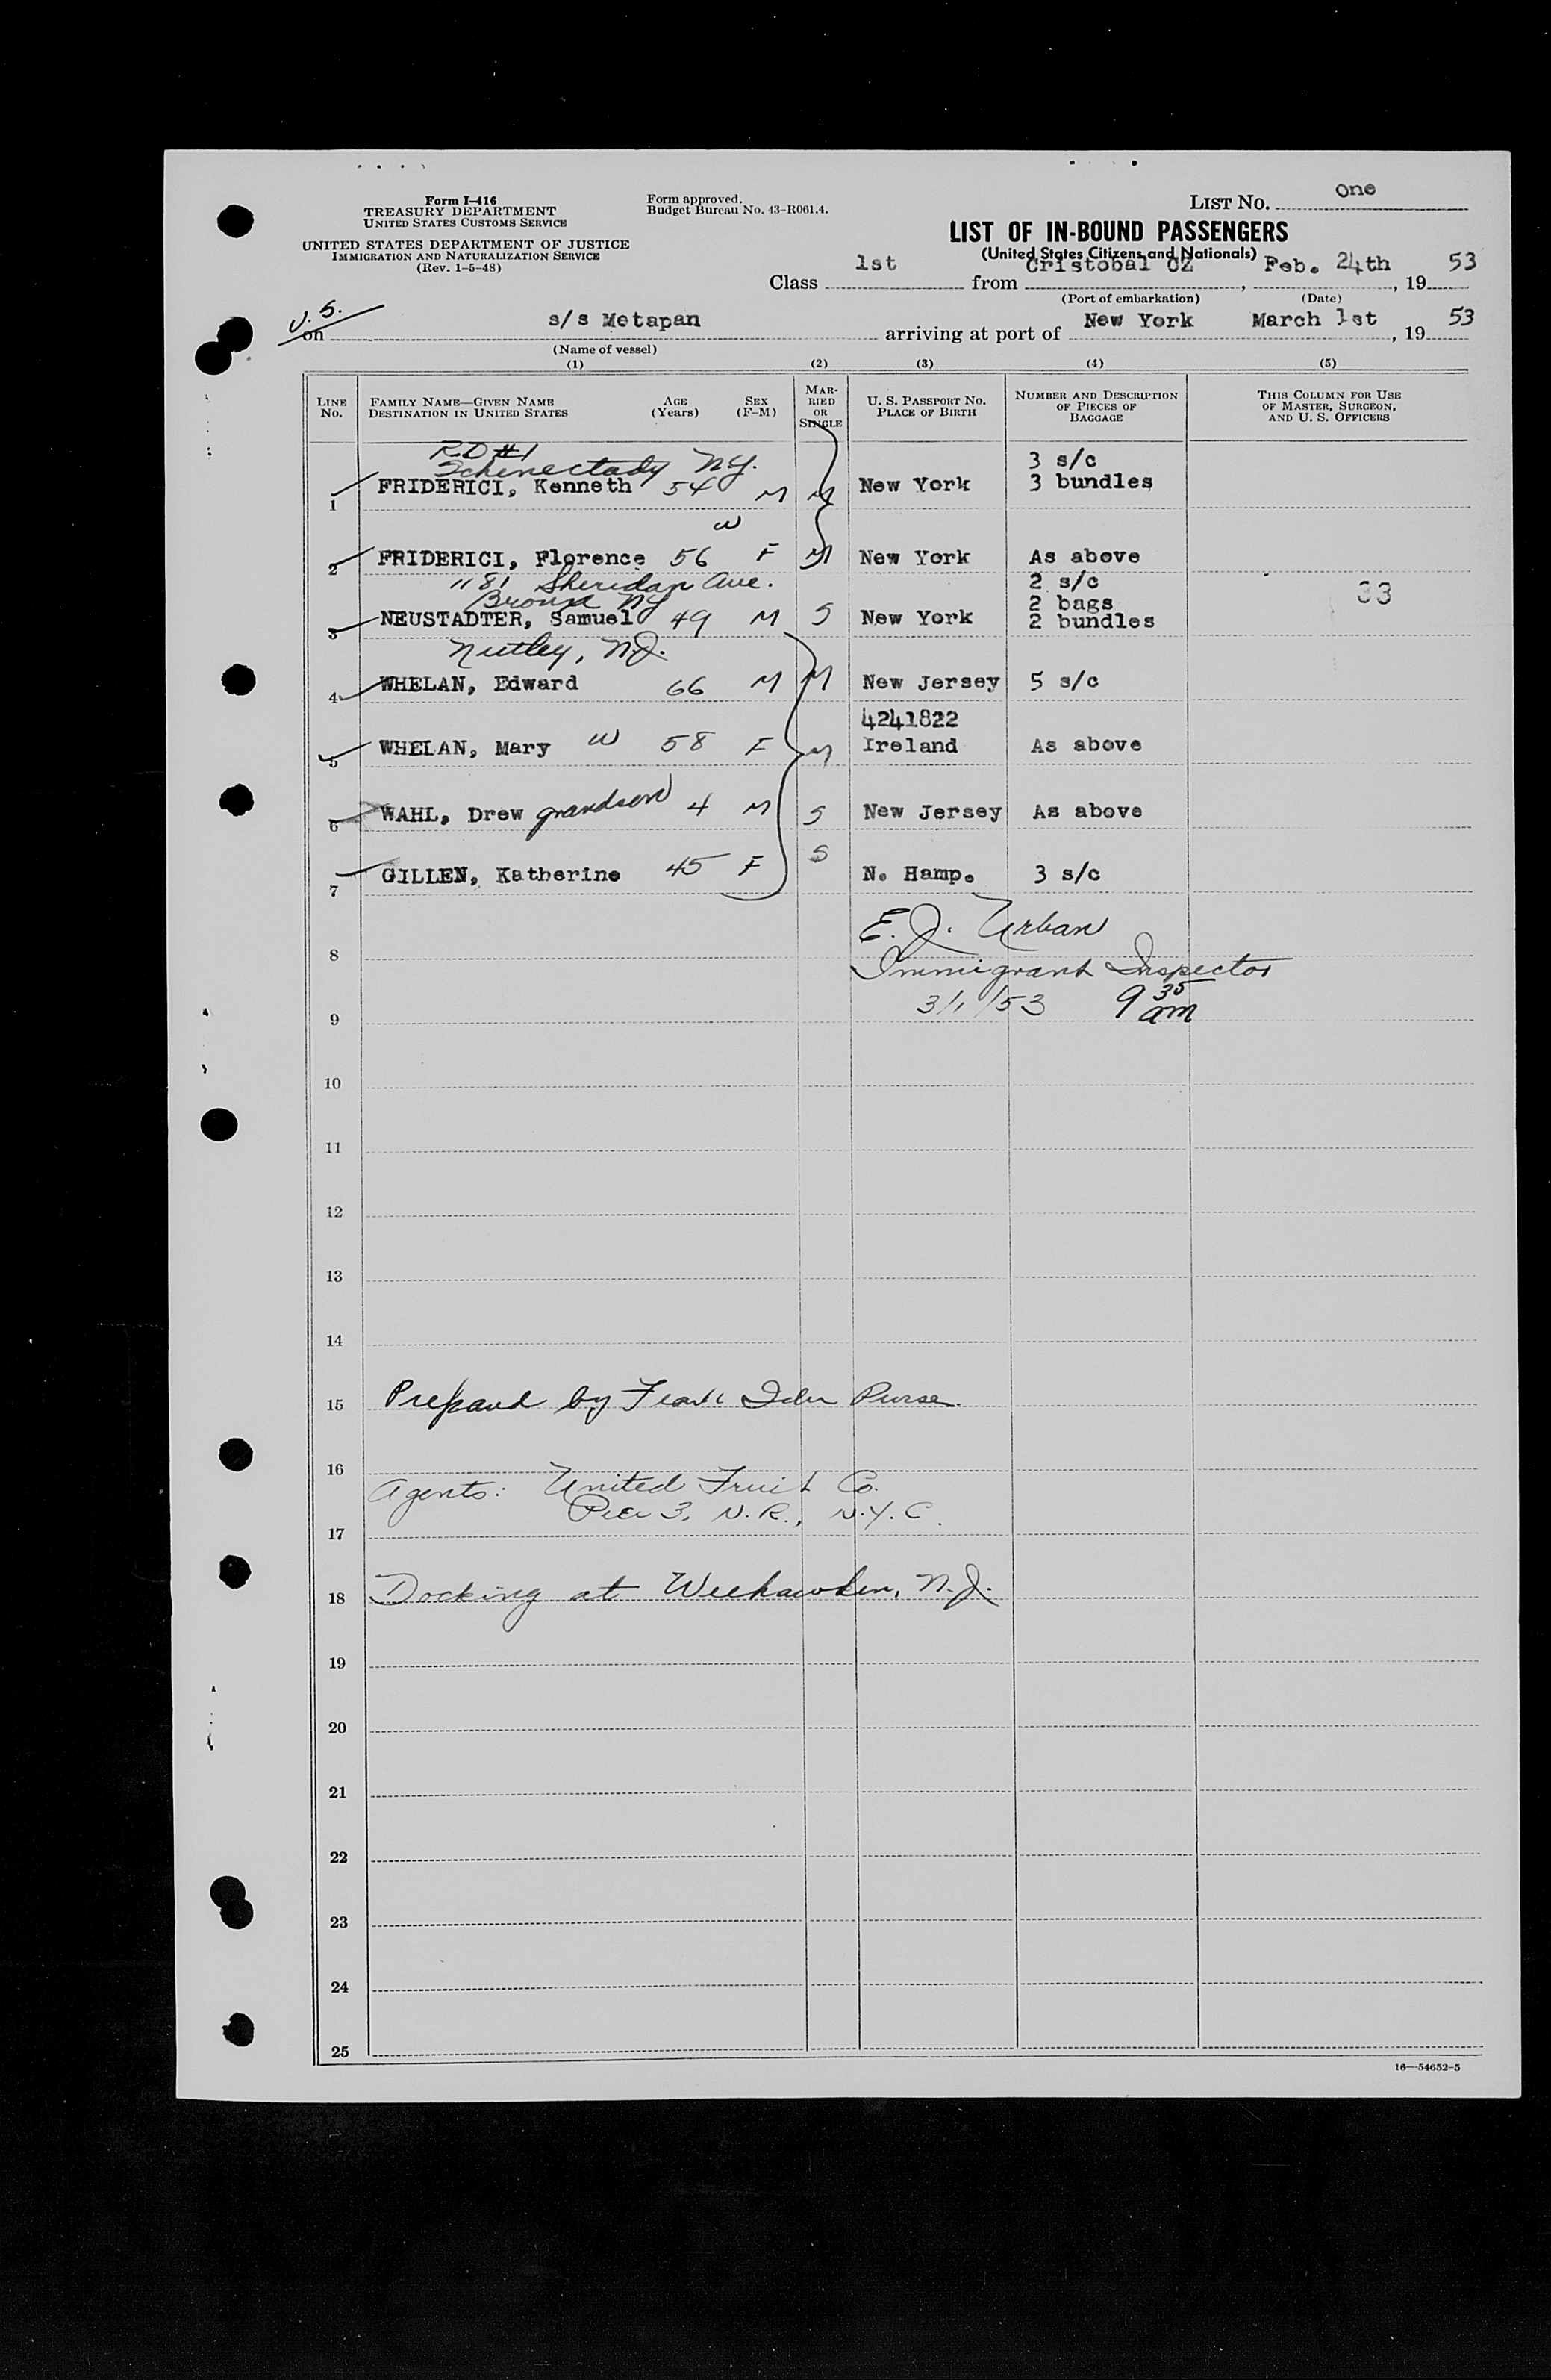 Form I-416
TREASURY DEPARTMENT
UNITED STATES CUSTOMS SERVICE
UNITED STATES DEPARTMENT OF JUSTICE
IMMIGRATION AND NATURALIZATION SERVICE
(Rev. 1-5-48)
Form approved.
Budget Bureau No. 43-R061.4.
LIST No. One
LIST OF IN-BOUND PASSENGERS
(United States Citizens and Nationals)
Class 1st from Cristobal CZ, Feb. 24th, 1953
(Port of embarkation) (Date)
U.S.
on s/s Metapan arriving at port of New York March 1st, 1953
(Name of vessel)
(1) (2) (3) (4) (5)
LINE No. FAMILY NAME—GIVEN NAME DESTINATION IN UNITED STATES AGE (Years) SEX (F-M) MARRIED OR SINGLE U. S. PASSPORT No. PLACE OF BIRTH NUMBER AND DESCRIPTION OF PIECES OF BAGGAGE THIS COLUMN FOR USE OF MASTER, SURGEON, AND U. S. OFFICERS
RD #1
Schenectady NY. 3 s/c
1 FRIDERICI, Kenneth 54 M M New York 3 bundles
w
2 FRIDERICI, Florence 56 F M New York As above
1181 Sheridan Ave. 2 s/c
Bronx NY 2 bags 33
3 NEUSTADTER, Samuel 49 M S New York 2 bundles
Nutley, N.J.
4 WHELAN, Edward 66 M M New Jersey 5 s/c
4241822
5 WHELAN, Mary w 58 F M Ireland As above
6 WAHL, Drew grandson 4 M S New Jersey As above
7 GILLEN, Katherine 45 F S N. Hamp. 3 s/c
E. J. Urban
8
Immigrant Inspector
3/1/53 9 35 am
9
10
11
12
13
14
15 Prepared by Frank Purser
16
Agents: United Fruit Co.
Pier 3, N.R., N.Y.C.
17
18 Docking at Weehawken, N.J.
19
20
21
22
23
24
25
16—54652-5